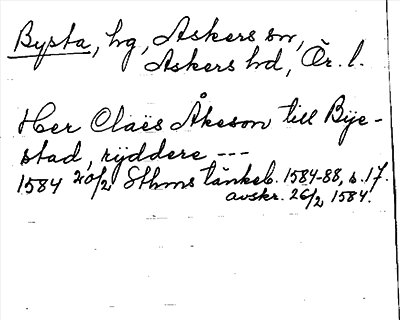 Bysta, hg, Askers sn,
Askers hd, Ör. l.
Her Claës Åkeson till Bÿe-
stad, rÿddere ---
1584 20/2 Sthms tänkeb. 1584-88, s. 17.
avskr. 26/2 1584.